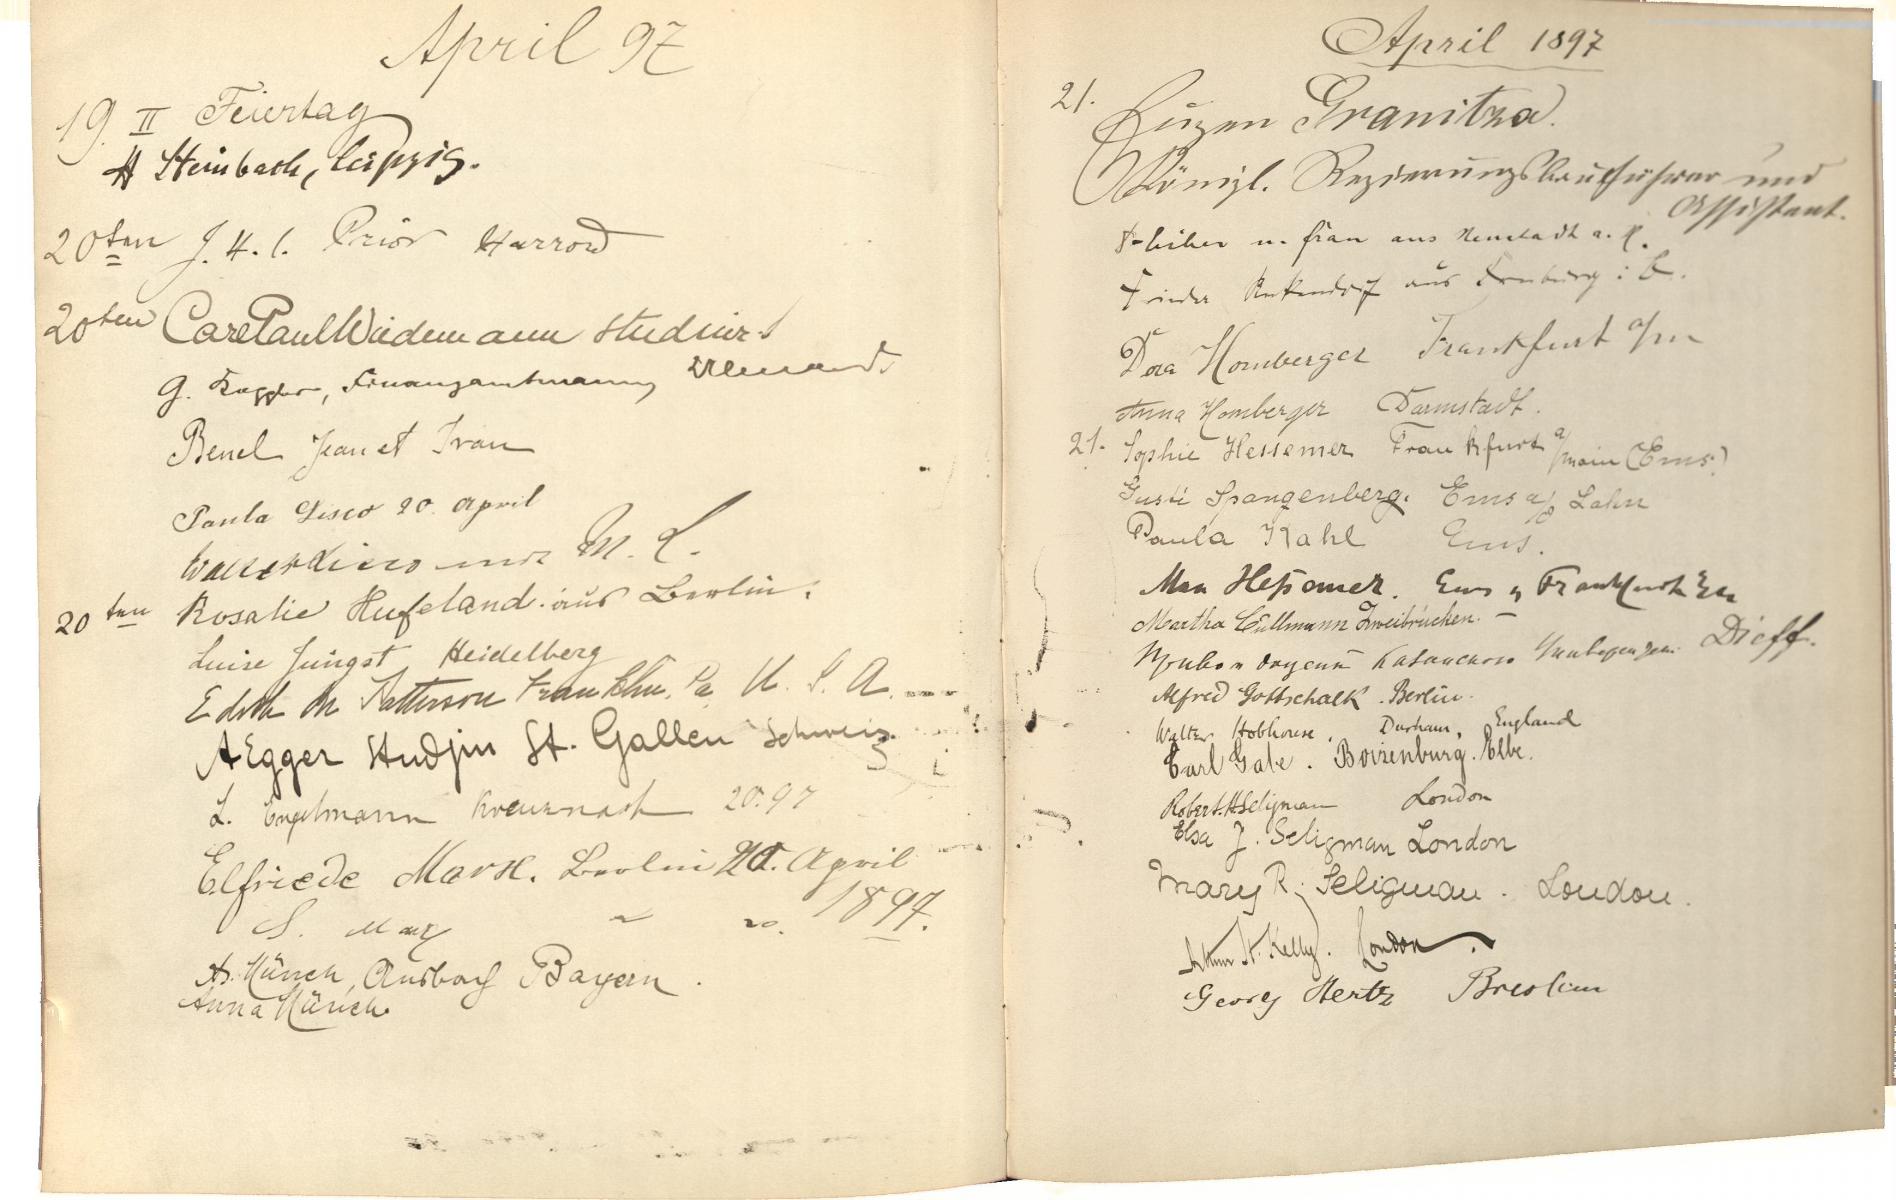 April 97
19. II Feiertag
H Steinbach, Leipzig.
20ten J. H. C. Prior Harrow
20ten Carl Paul Wiedemann
G. Finanzamtmann,
Benel Jean et Ivan
Paula Lisco 20. April
Walter Lisco M. L.
20ten Rosalie Hufeland aus Berlin.
Luise Jüngst Heidelberg
Edith M Patterson Franklin, Pa U. S. A.
A Egger Studjur St. Gallen Schweiz.
L. Engelmann Kreuznach 20. 97
Elfriede Marx. Berlin 20. April
1897.
S. Marx " 20.
As. Münch, Ansbach Bayern.
Anna Münch
April 1897
21.
Eugen Granitza.
Königl. Regierungsbauführer und
Assistent.
u. Frau aus Neustadt a. H.
Frieda aus
Dora Homberger Frankfurt a/m
Anna Homberger Darmstadt.
21. Sophie Hessemer Frankfurt a/main (Ems)
Gusti Spangenberg. Ems a/d Lahn
Paula Kahl Ems.
Max Heßemer. Ems u Frankfurt
Martha Cullmann Zweibrücken. –
Alfred Gottschalk. Berlin.
Walter Hobhouse, Durham, England
Carl Gate. Boizenburg. Elbe.
Robert H Seligman London
Elsa J. Seligman London
Mary R. Seligman. London.
Arthur H. Kelly. London.
Georg Hertz Breslau